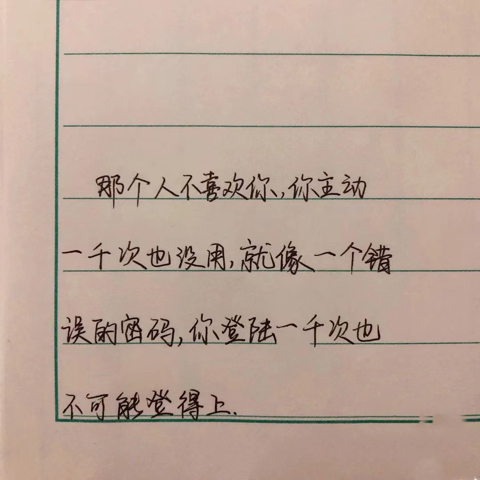 那个人不喜欢你,你主动
一千次也没用,就像一个错
误的密码,你登陆一千次也
不可能登得上.